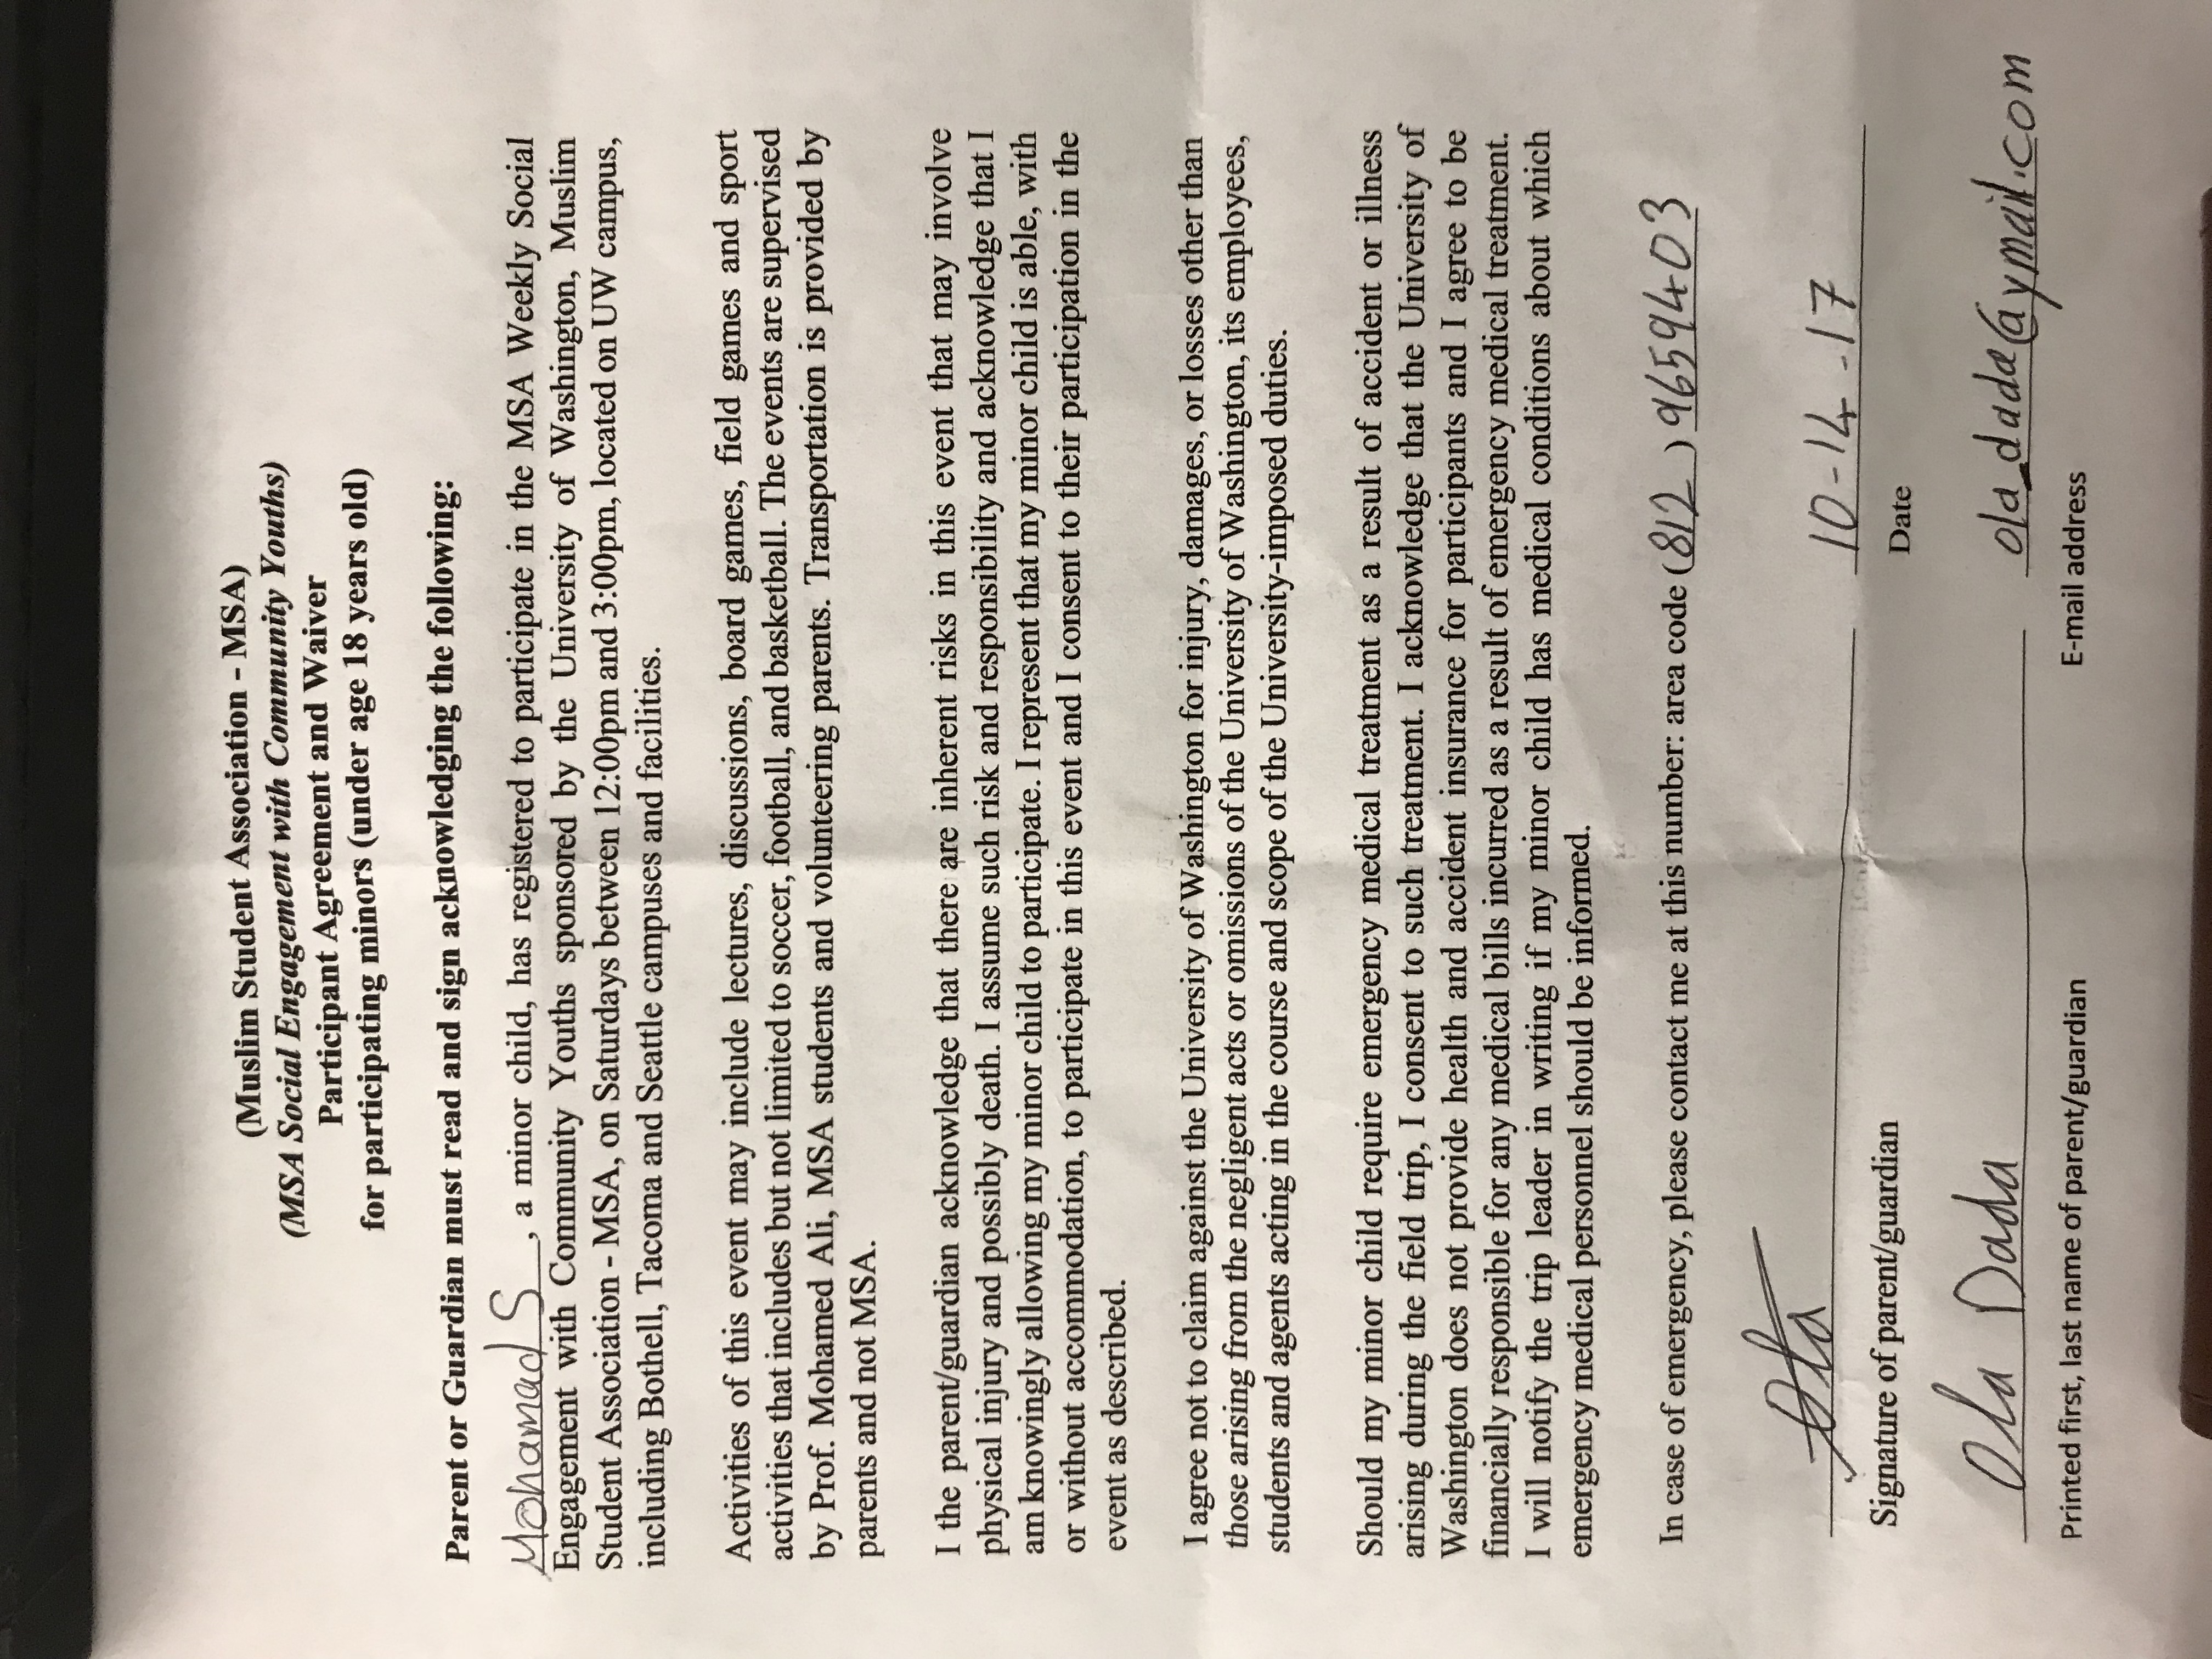 (Muslim Student Association - MSA)
(MSA Social Engagement with Community Youths)
Participant Agreement and Waiver
for participating minors (under age 18 years old)
Parent or Guardian must read and sign acknowledging the following:
Mohamad S, a minor child, has registered to participate in the MSA Weekly Social
Engagement with Community Youths sponsored by the University of Washington, Muslim
Student Association - MSA, on Saturdays between 12:00pm and 3:00pm, located on UW campus,
including Bothell, Tacoma and Seattle campuses and facilities.
Activities of this event may include lectures, discussions, board games, field games and sport
activities that includes but not limited to soccer, football, and basketball. The events are supervised
by Prof. Mohamed Ali, MSA students and volunteering parents. Transportation is provided by
parents and not MSA.
I the parent/guardian acknowledge that there are inherent risks in this event that may involve
physical injury and possibly death. I assume such risk and responsibility and acknowledge that I
am knowingly allowing my minor child to participate. I represent that my minor child is able, with
or without accommodation, to participate in this event and I consent to their participation in the
event as described.
I agree not to claim against the University of Washington for injury, damages, or losses other than
those arising from the negligent acts or omissions of the University of Washington, its employees,
students and agents acting in the course and scope of the University-imposed duties.
Should my minor child require emergency medical treatment as a result of accident or illness
arising during the field trip, I consent to such treatment. I acknowledge that the University of
Washington does not provide health and accident insurance for participants and I agree to be
financially responsible for any medical bills incurred as a result of emergency medical treatment.
I will notify the trip leader in writing if my minor child has medical conditions about which
emergency medical personnel should be informed.
In case of emergency, please contact me at this number: area code (812) 9659403
Ola 10-14-17
Signature of parent/guardian Date
Ola Dada ola_dada@ymail.com
Printed first, last name of parent/guardian E-mail address